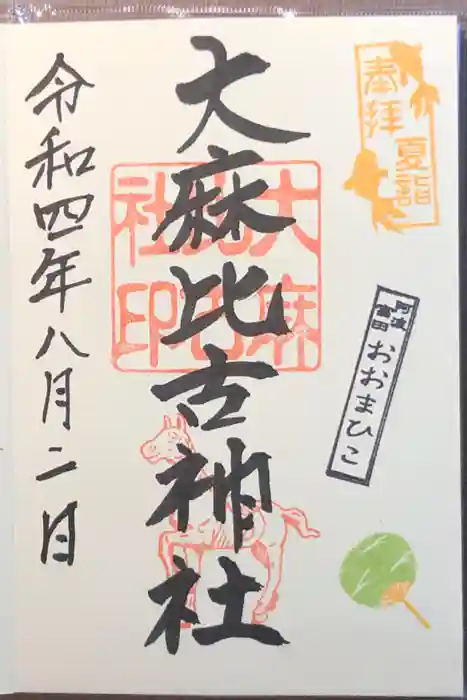 奉拝
夏詣
阿波
富田
おおまひこ
大麻比古神社
大麻比古社印
令和四年八月二日